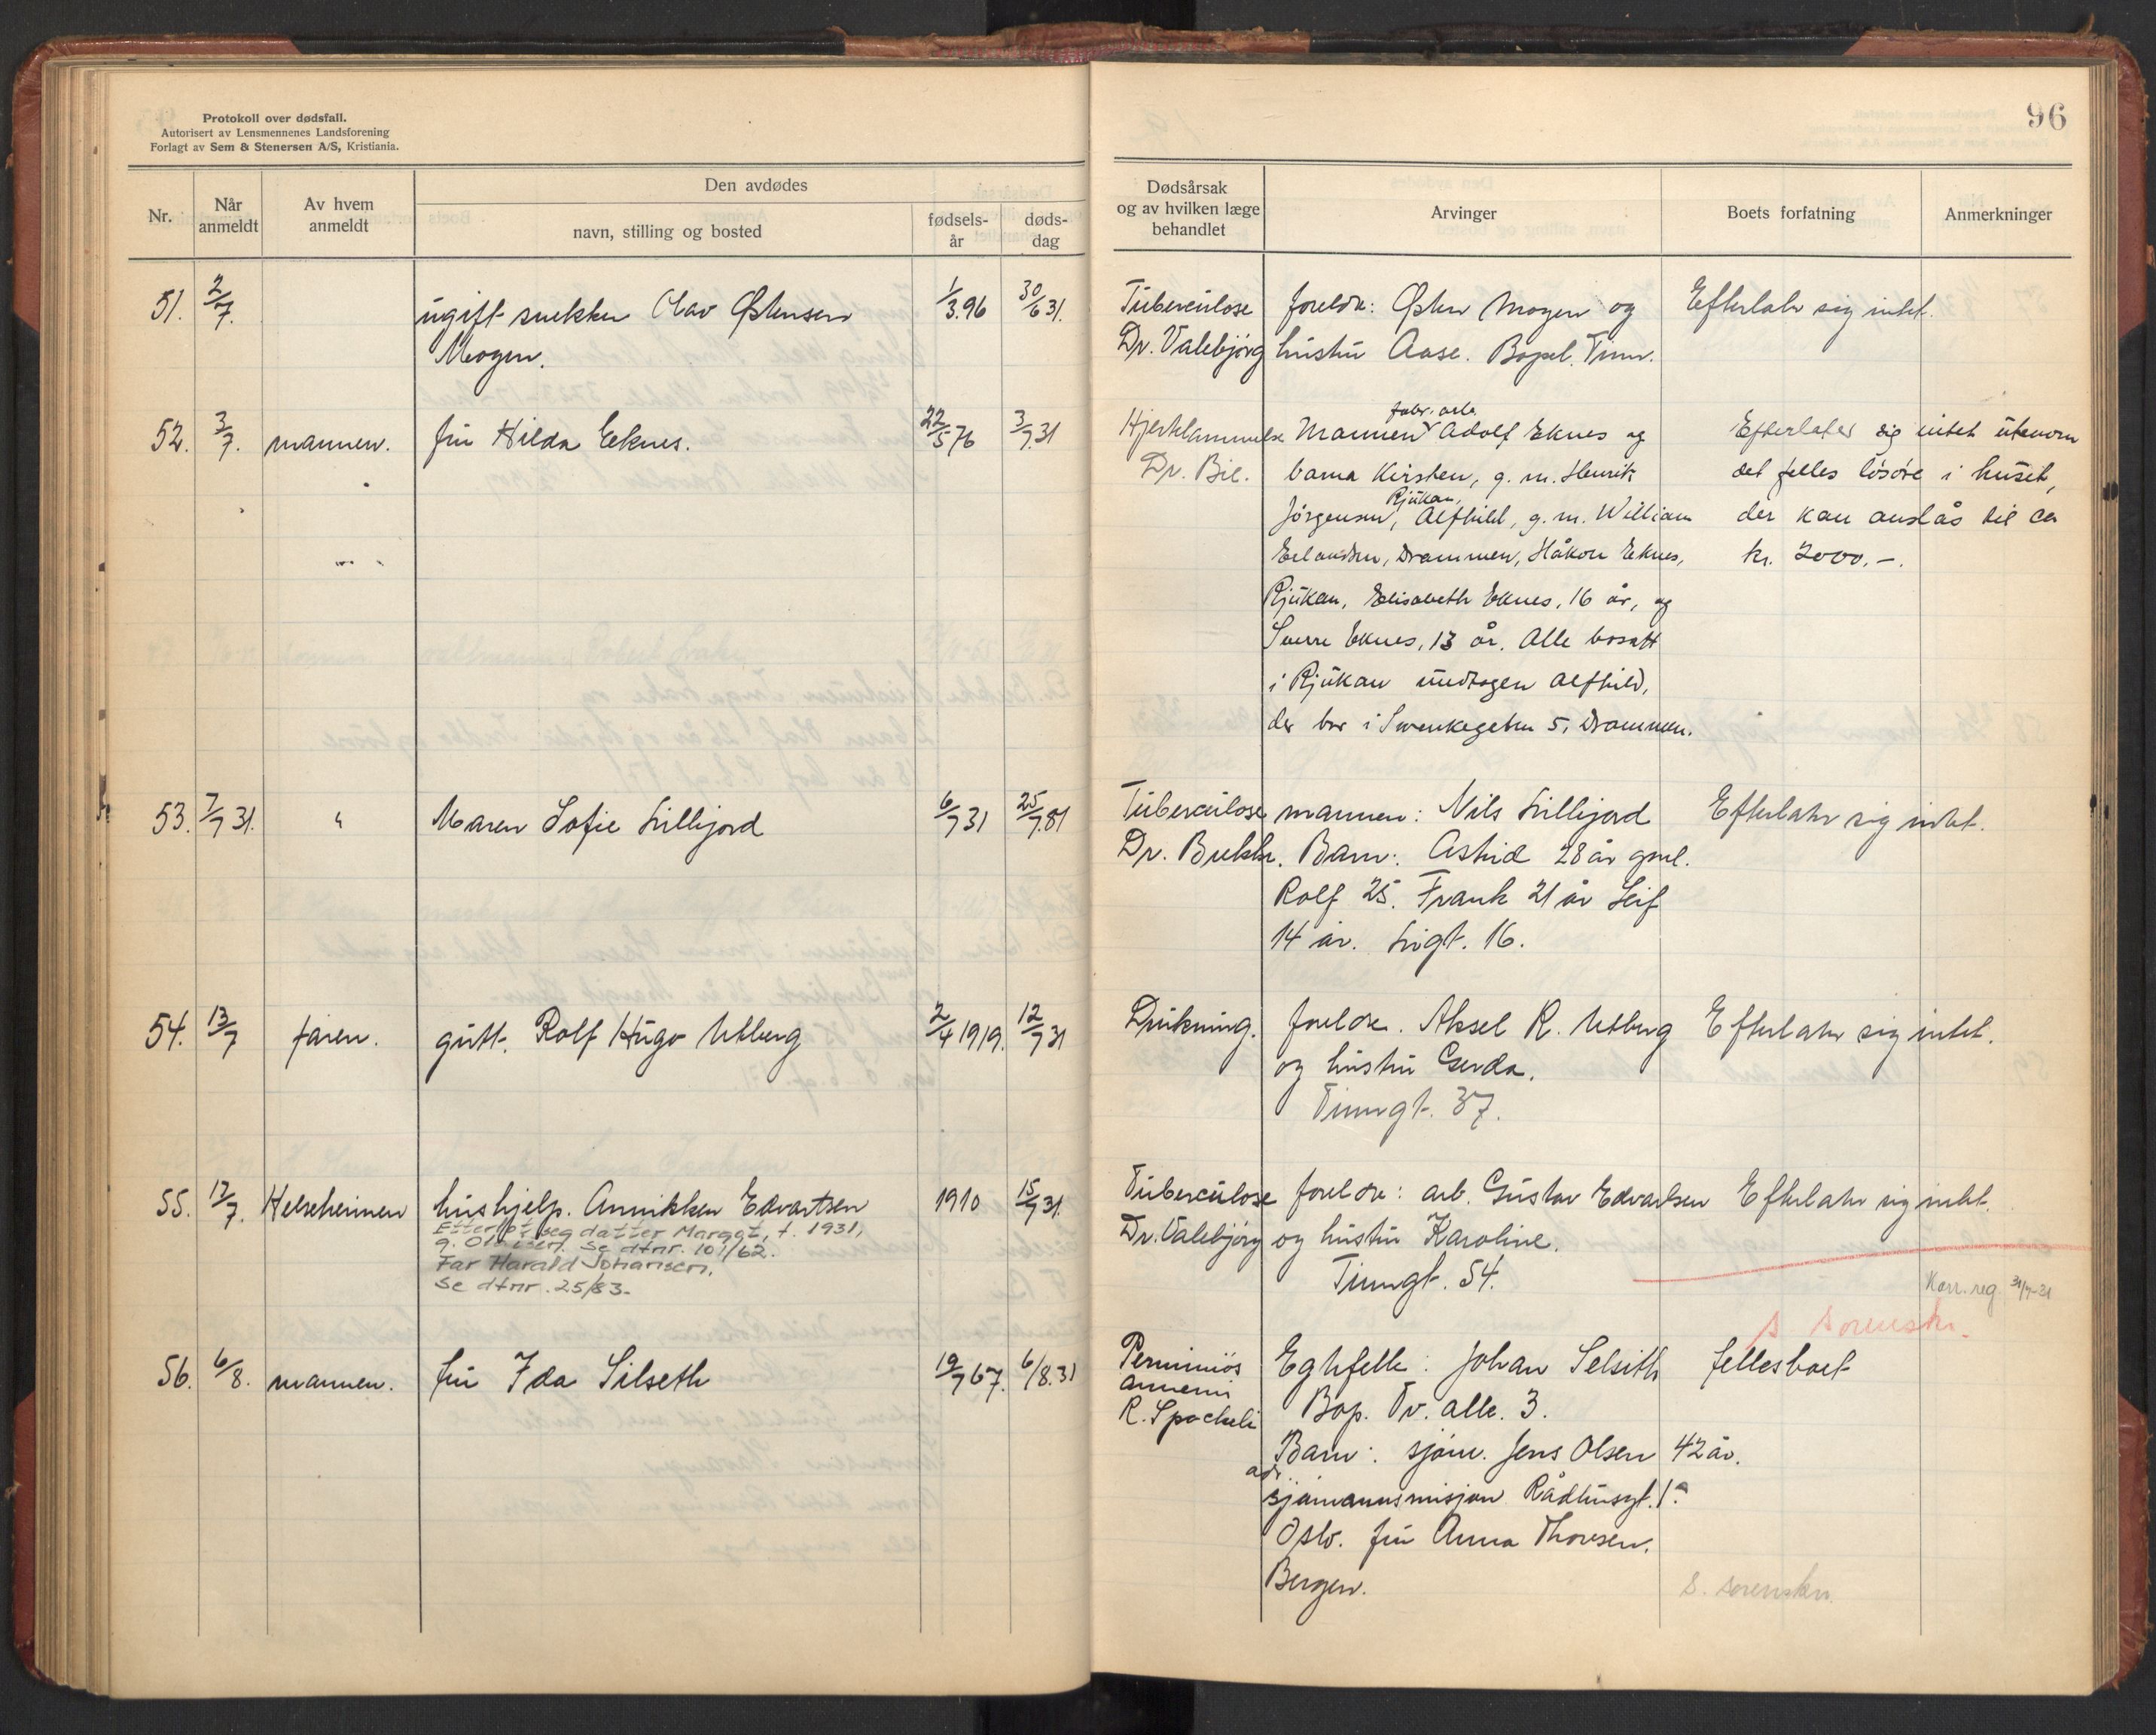 Protokoll over dødsfall.
Autorisert av Lensmennenes Landsforening
Forlagt av Sem & Stenersen A/S, Kristiania.
96
Nr.
Når anmeldt
Av hvem anmeldt
Den avdødes
navn, stilling og bosted
fødsels-år
døds-dag
Dødsårsak og av hvilken læge behandlet
Arvinger
Boets forfatning
Anmerkninger
51. 2/7. ugift snekker Olav Østensen 1/3.96 30/6 31.
Mogen.
Tuberculose foreldr: Østen Mogen og Efterlatr sig intet.
Dr. Valebjörg hustru Aase. Bopel. Tinn.
52. 3/7. mannen. fru Hilda Eeknes. 22/5 76 3/7.31
fabr. arb.
Hjerteslammelse Mannen Adolf Eknes og Efterlates sig intet utenom
Dr. Bie. barna Kirsten, g. m. Henrik det felles løsøre i huset,
Rjukan,
Jörgensen, Alfhild, g. m. William der kan anslås til ca
Erlandsen, Drammen, Håkon Eknes, kr. 2000.-.
Rjukan, Elisabeth Eknes, 16 år, og
Sverre Eknes, 13 år. Alle bosatt
i Rjukan undtagen Alfhild,
der bor i Svenkegaten 5, Drammen.
53. 7/7 31. " Maren Sofie Lillijord 6/7 31 25/7.81
Tuberculose mannen: Nils Lillijord Efterlatr sig intet.
Dr. Bukkr. Barn: Astrid 28 år gml.
Rolf 25. Frank 21 år Leif
14 år. Sigt. 16.
54. 13/7 faren. gutt. Rolf Hugo Utberg 2/4 1919. 12/7 31
Drukning. foreldre. Aksel R. Utberg Efterlatr sig intet.
og hustru Gerda.
Tinngt. 37.
55. 17/7. Helseheimen hushjelp. Annikken Edvartsen 1910 15/7 31.
Etterlot seg datter Margot, f. 1931,
g. Se dfnr. 101/62.
Far Harald Johansen.
Se dfnr. 25/83.
Tuberculose foreldre: arb. Gustav Edvartsen Efterlatr sig intet.
Dr. Valebjörg og hustru Karoline.
Tinngt. 54.
Karr. reg. 31/7-31
s sorenskr.
56. 6/8. mannen. fru Ida Silseth 19/7 67. 6/8.31
Perniciös Egtefelle: Johan Selseth fellesboet
annemi Bop. Tv. alle. 3.
R. Spockeli
Barn: sjöm. Jens Olsen 42 år.
adr.
sjømannsmisjon Rådhusgt. 1.
Oslo. fru Anna Thorsen.
Bergen.
S. sorenskr.